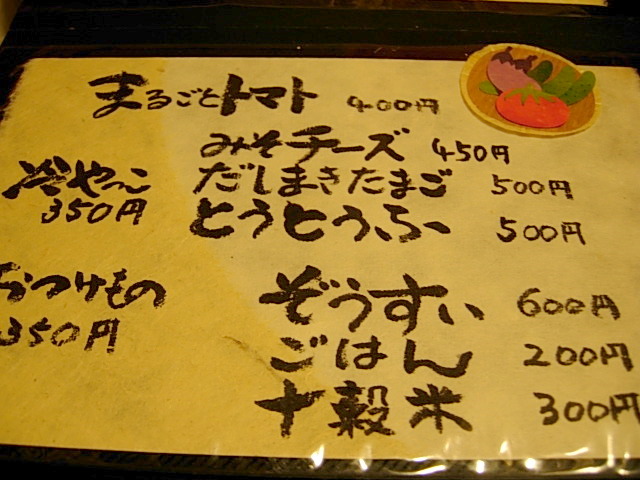 まるごとトマト 400円
みそチーズ 450円
だしまきたまご 500円
とうとうふ 500円
冷やっこ
350円
おつけもの
350円
ぞうすい 600円
ごはん 200円
十穀米 300円